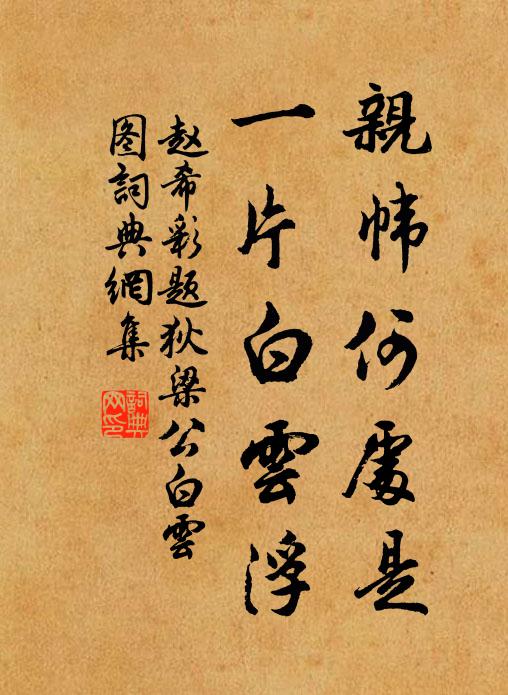 親幃何處是
一片白雲浮
赵希彰題狄梁公白雲
图詞典網集
詞典
网印